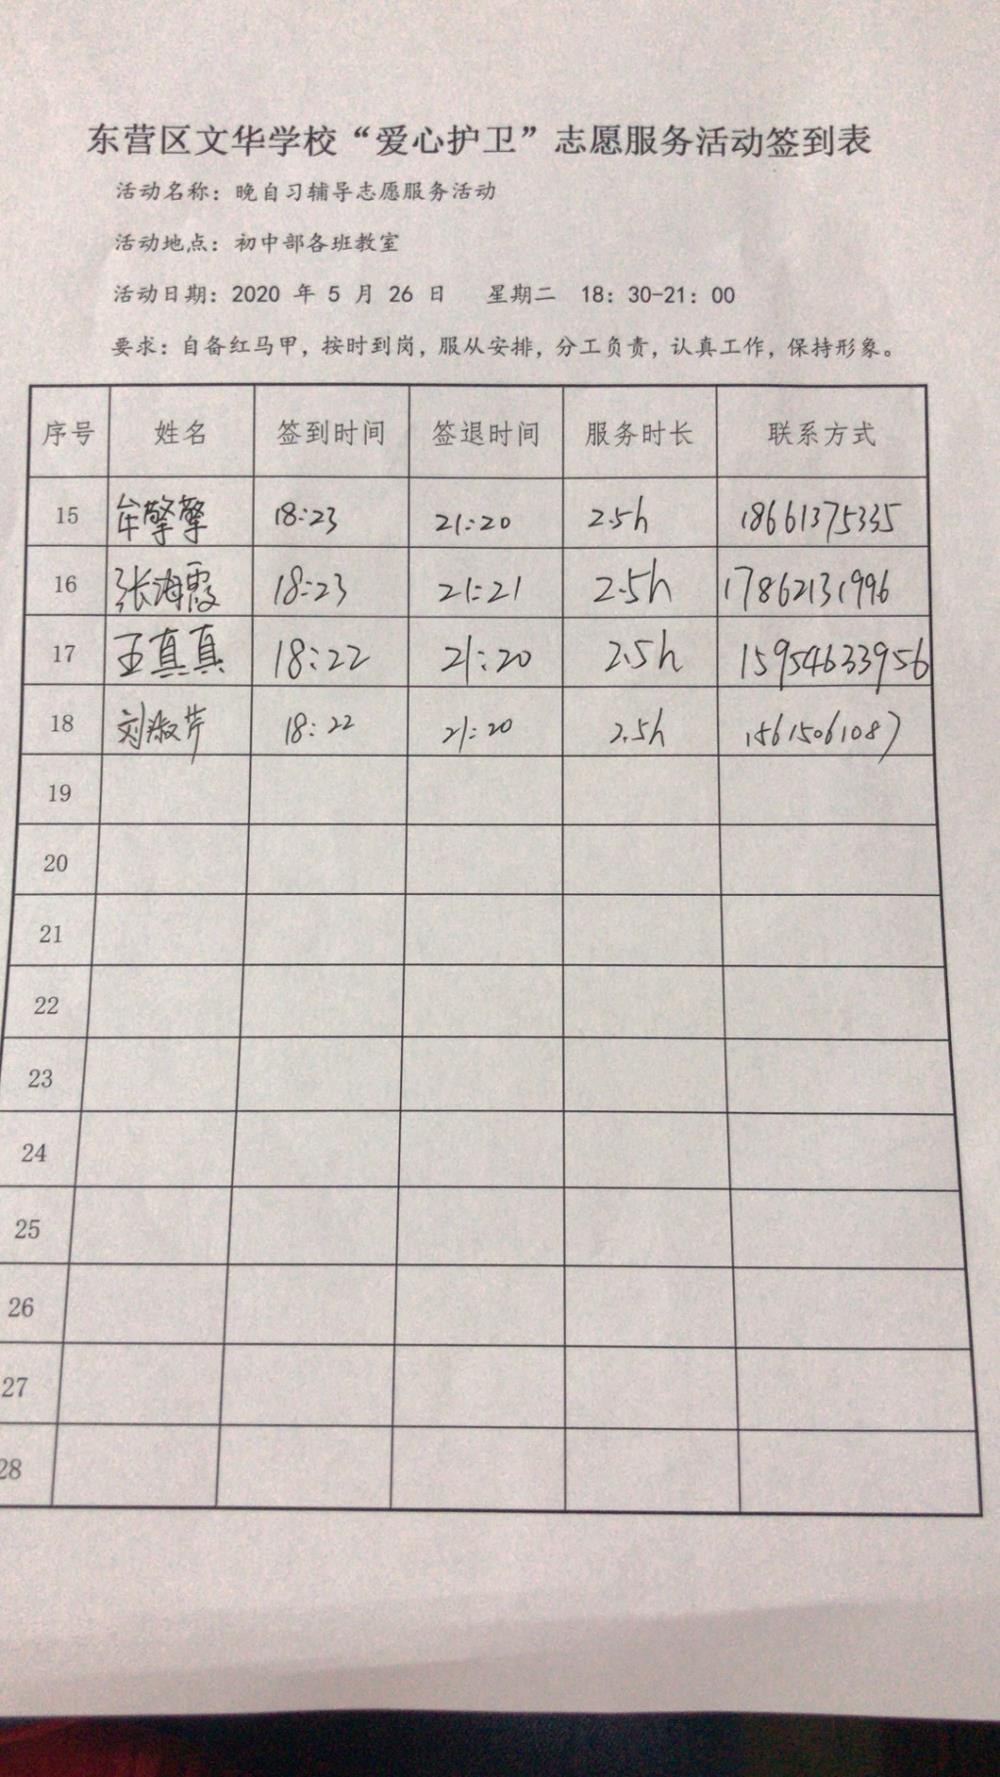 东营区文华学校“爱心护卫”志愿服务活动签到表
活动名称：晚自习辅导志愿服务活动
活动地点：初中部各班教室
活动日期：2020 年 5 月 26 日 星期二 18：30-21：00
要求：自备红马甲，按时到岗，服从安排，分工负责，认真工作，保持形象。
序号 姓名 签到时间 签退时间 服务时长 联系方式
15 牟擎擎 18:23 21:20 2.5h 18661375335
16 张海霞 18:23 21:21 2.5h 17862131996
17 王真真 18:22 21:20 2.5h 15954633956
18 刘淑芹 18:22 21:20 2.5h 15615061087
19
20
21
22
23
24
25
26
27
28